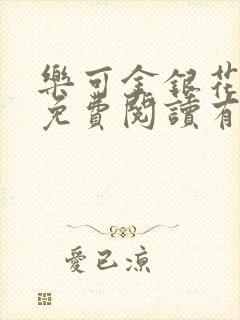 樂可金銀花
免費閱讀有
愛已涼